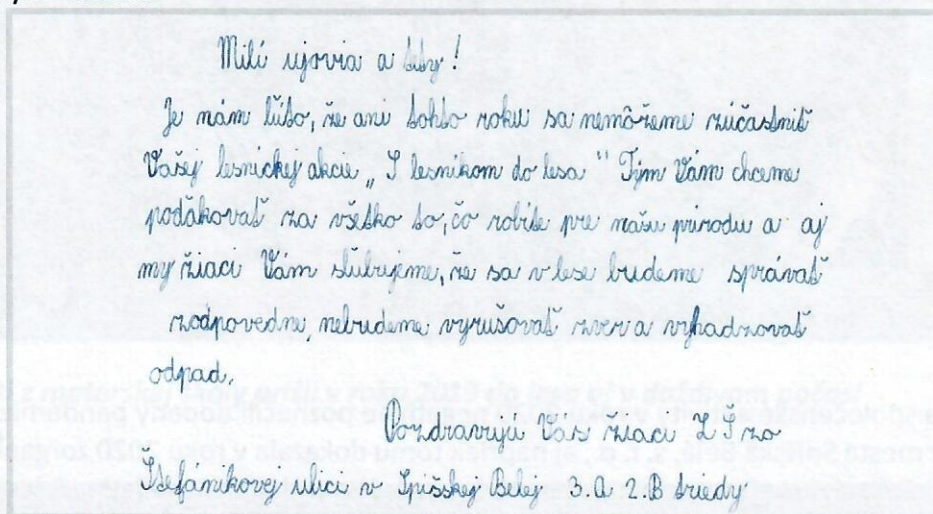 Milí ujovia a tety!
Je nám ľúto, že ani tohto roku sa nemôžeme zúčastniť
Vašej lesnickej akcie „S lesníkom do lesa“ Tým Vám chceme
poďakovať za všetko to, čo robíte pre našu prírodu a aj
my žiaci Vám slubujeme, že sa v lese budeme správať
zodpovedne, nebudeme vyrušovať zver a vyhadzovať
odpad.
Pozdravujú Vás žiaci ZŠ zo
Štefánikovej ulici v Spišskej Belej 3.A 2.B triedy